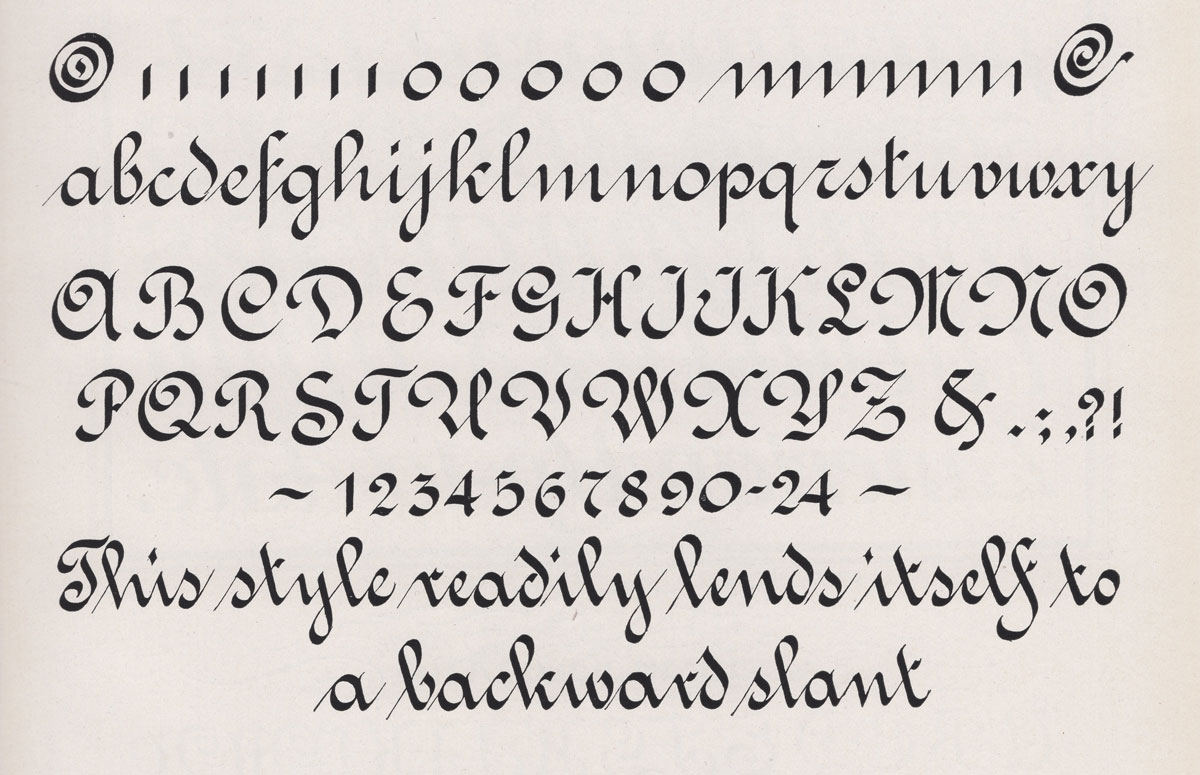 ııııııııooooo mmmm
abcdefghijklmnopqrstuvwxy
ABCDEFGHIJKLMNO
PQRSTUVWXYZ & . ; , ? !
~ 1234567890-24 ~
This style readily lends itself to
a backward slant